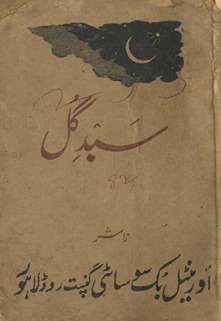 سبدِ گُل
ناشر
اورینٹیل بک سوسائٹی گنپت روڈ لاہور